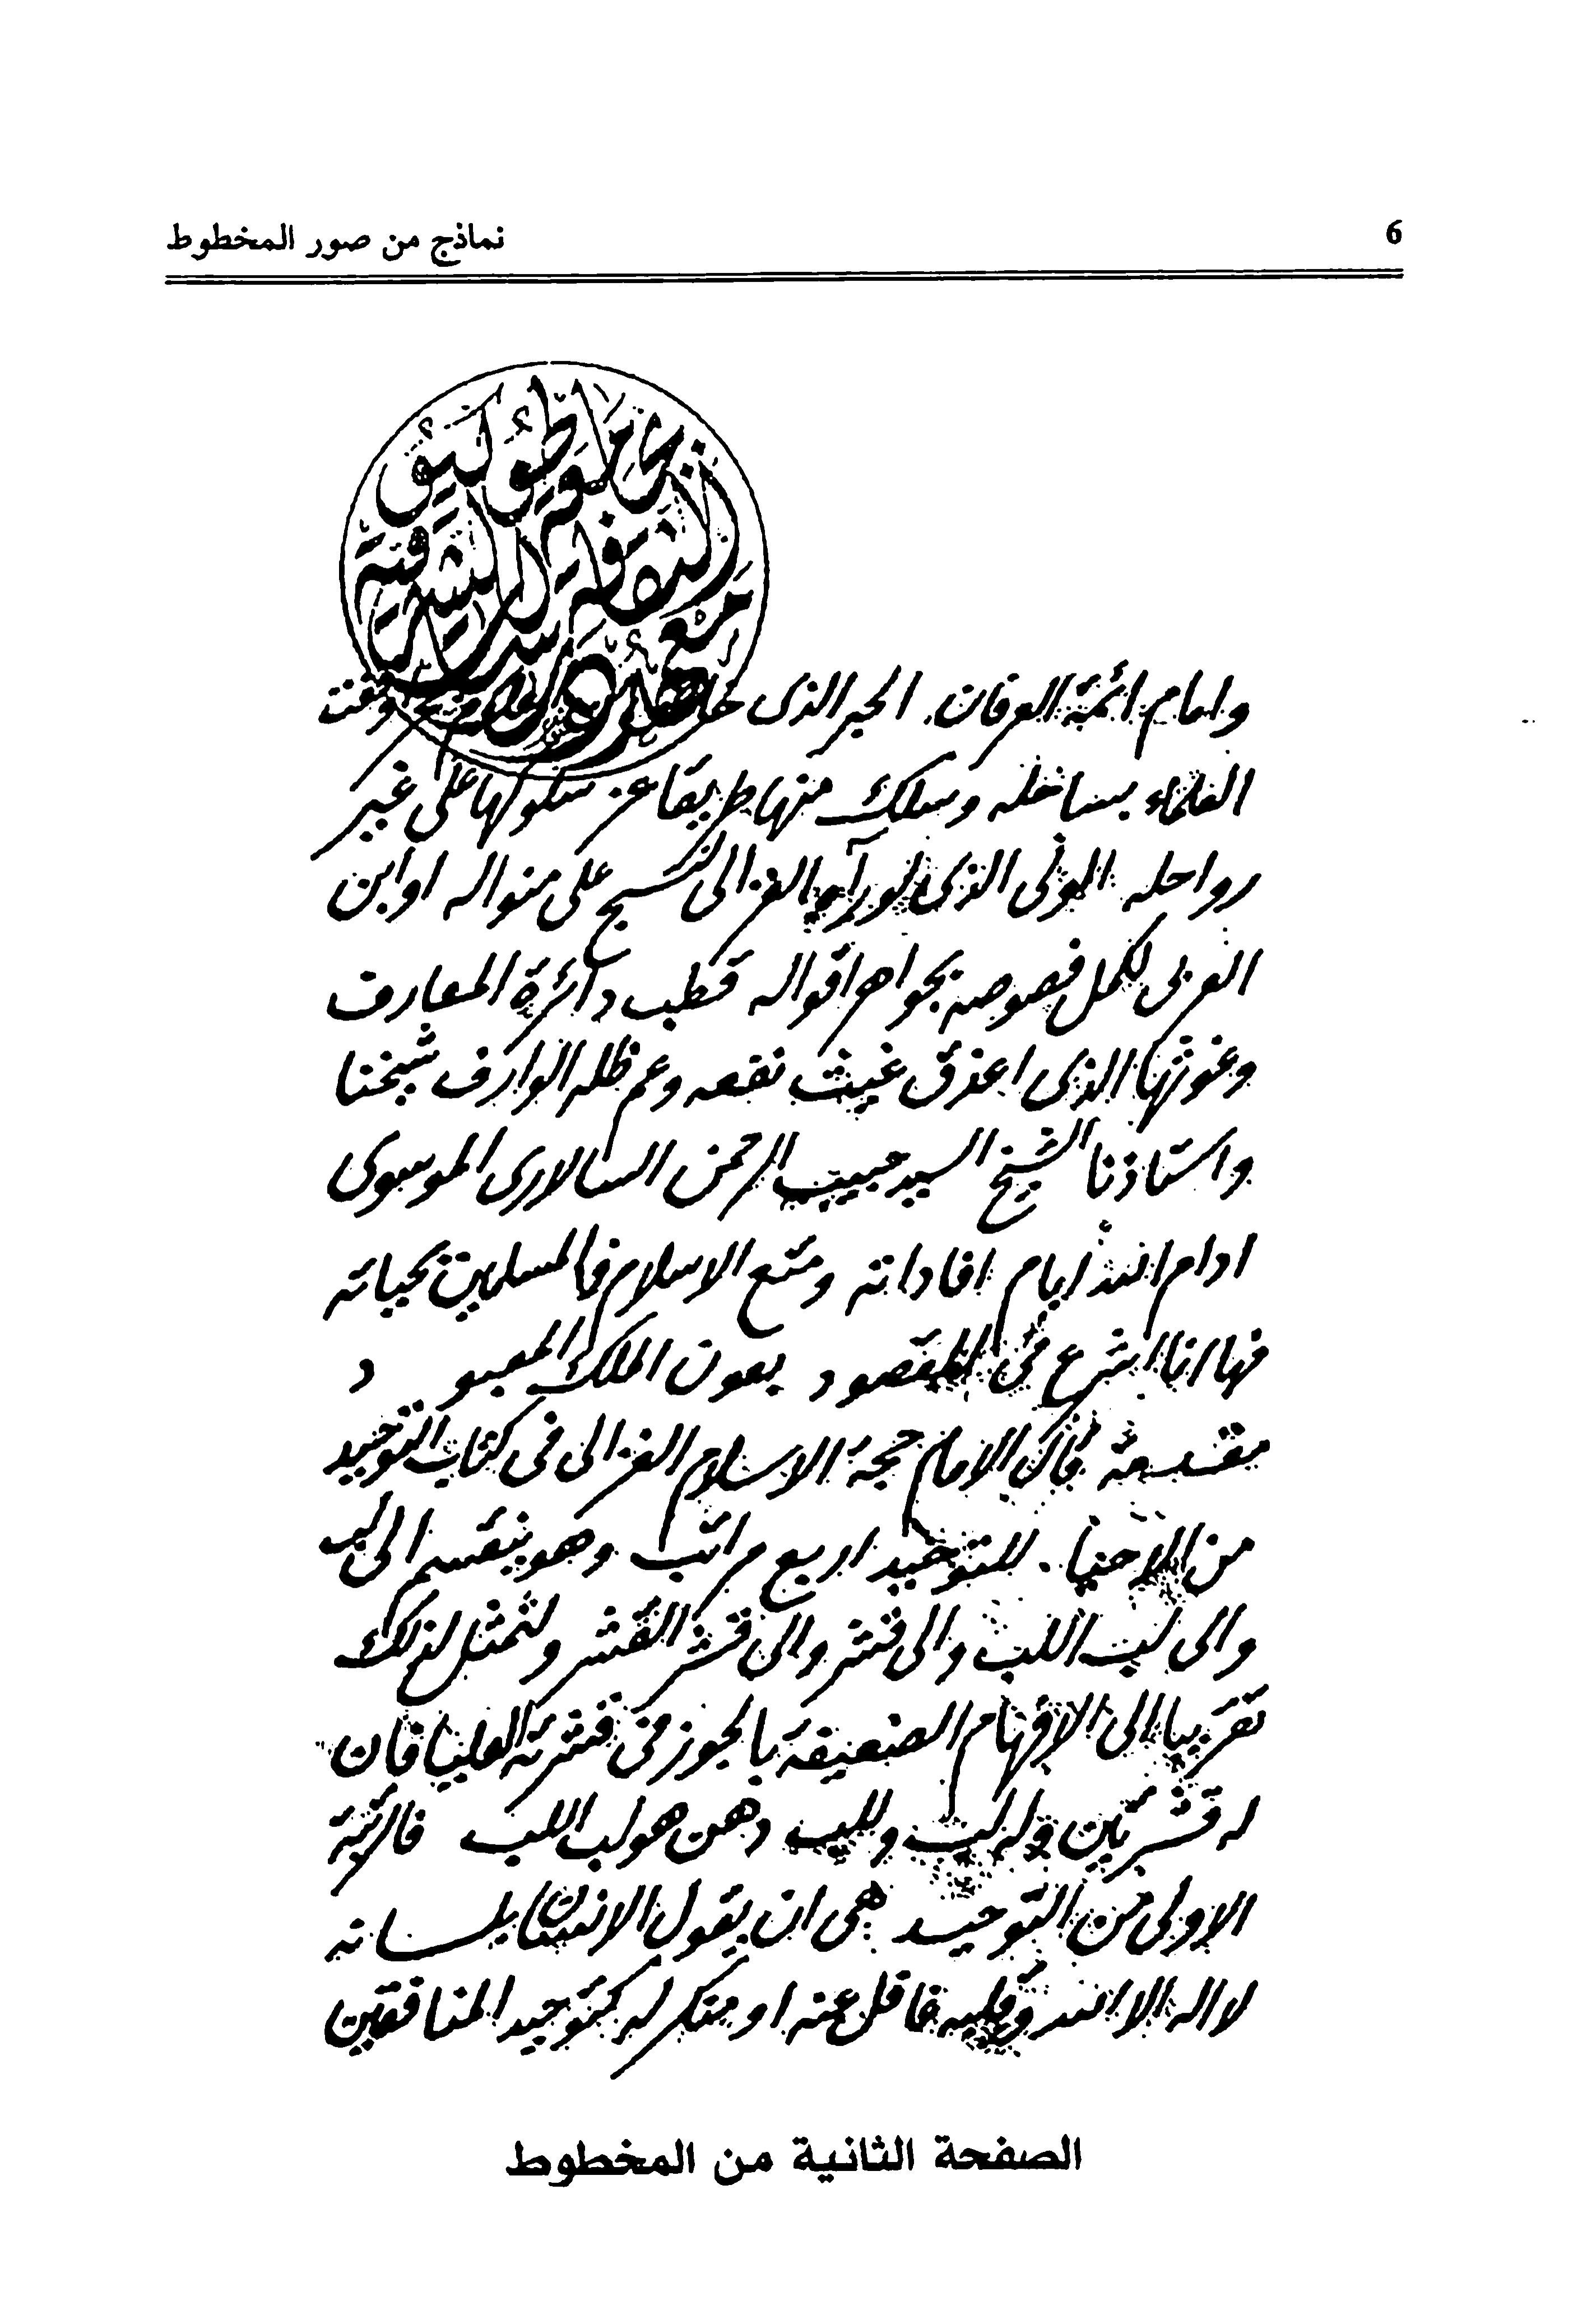 نماذج من صور المخطوط
6
وامام ائمة العرفان. الحبر الذى خاض وقفت
العلماء بساحله وسلك منها طريقا عز سلوكها على غير
رواحله المولى الذى لو رآه الغزالى لنسج على منواله او ابن
العربى لكمل فصوصه بجواهر اقواله قطب دائرة المعارف
وغوثها الذى اغدق غيث نفعه وعم ظله الوارف شيخنا
واستاذنا الشيخ السيد حبيب الرحمن السالارى الموسوى
ادام الله ايام افاداته ومتع الاسلام والمسلمين بحياته
فها انا اشرع فى المقصود بعون الملك المعبود
مقدمة قال الامام حجة الاسلام الغزالى فى كتاب التوحيد
من الاحيا. للتوحيد اربع مراتب وهو ينقسم الى لب
والى لب اللب والى قشر والى قشر القشر ولنمثل لذلك
تقريبا الى الافهام الضعيفة بالجوز فى قشرته العليا فان
له قشرتين وله لب وللب دهن هو لب اللب فالرتبة
الاولى من التوحيد هى ان يقول الانسان بلسانه
لا اله الا الله وقلبه غافل عنه او منكر له كتوحيد المنافقين
الصفحة الثانية من المخطوط